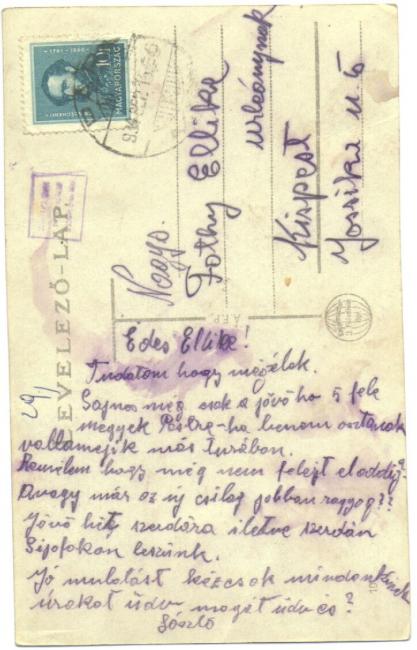 LEVELEZŐ-LAP.
1791-1860
10f
MAGYARORSZÁG
SZÉCHENYI
Nagys.
Fothy Ellike
urleánynak
Kispest
Jósika u. 5
29/
Édes Ellike!
Tudatom hogy megélek.
Sajnos még csak a jövő hó 5 fele
megyek Pestre-ha benem osztanak
vallamejik más turában.
Remélem hogy még nem felejt el addig?
Avagy már az új csillag jobban ragyog?!
Jövő hét szerdára illetve szerdán
Siófokon leszünk.
Jó mulatást kézcsók mindenkinek
urakat üdv. magát üdv és?
László